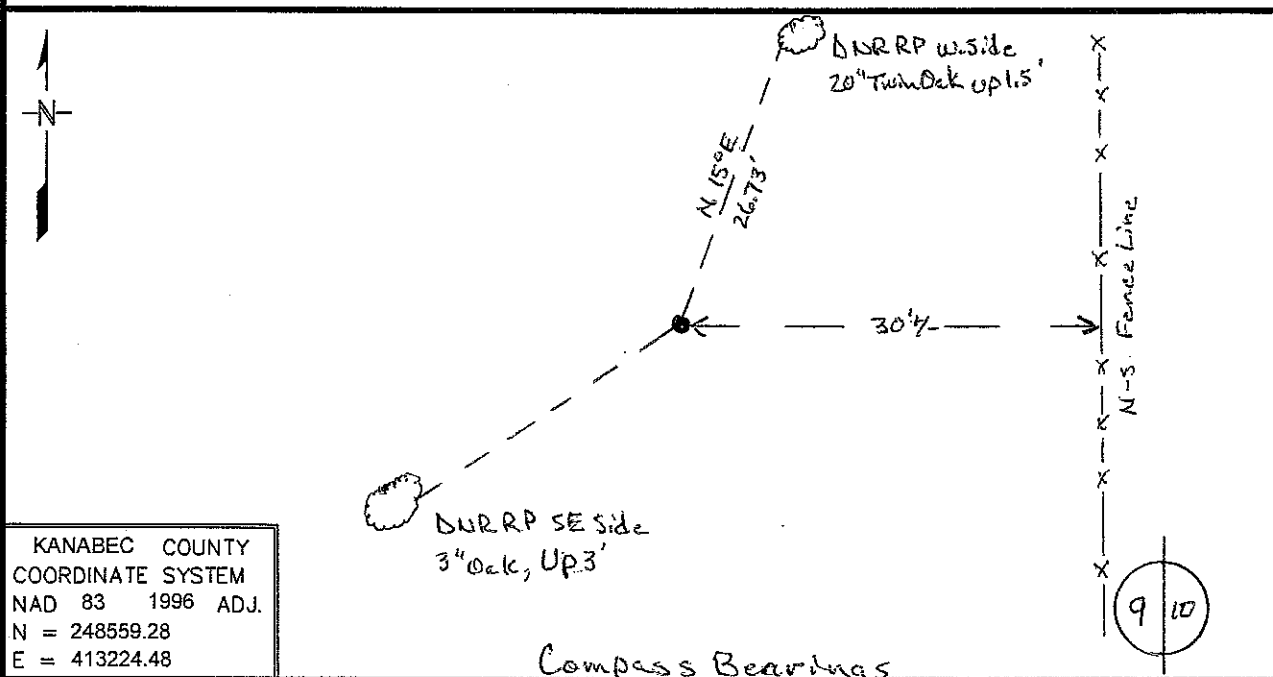 DNR RP w. side
20" Twin Oak up 1.5'
N
N 15° E
26.73'
30' +/-
N-S. Fence Line
DNR RP SE Side
3" Oak, Up 3'
KANABEC COUNTY
COORDINATE SYSTEM
NAD 83 1996 ADJ.
N = 248559.28
E = 413224.48
9 10
Compass Bearings